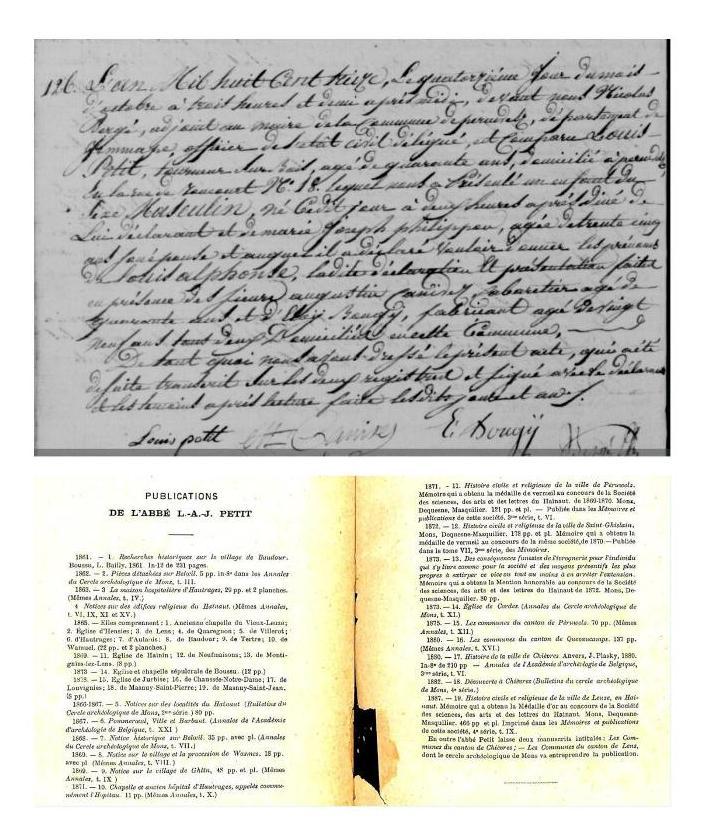 126. L'an Mil huit Cent treize, Le quatorzième Jour du mois
d'octobre à trois heures et demi après midi, devant nous Nicolas
Bergé, adjoint au maire de la Commune de peruwez, département de
Jemmape, officier de l'état civil délégué, est Comparu Louis
Petit, tourneur Sur bois, agé de quarante ans, domicilié à peruwelz
En la rue de roucourt N° 18. lequel nous a Présenté un enfant du
Sexe Masculin, né Cedit jour à deux heures après diné de
Lui déclarant et de marie Joseph philippar, agée de trente cinq
ans son épouse et auquel il a déclaré vouloir donner les prénoms
de Louis alphonse, ladite déclaration et présentation faites
en présence des sieurs augustin Canivez Cabaretier agé de
quarante ans et d'Eloy Bougÿ, fabricant agé de vingt
neuf ans tout deux Domiciliés en cette Commune,
De tout quoi nous avons dressé le présent acte, qui a été
de suite transcrit Sur les deux registres et signé avec le déclarant
et les témoins après lecture faite lesdits jour et an.
Louis petit E. Bougÿ
PUBLICATIONS
DE L'ABBÉ L.-A.-J. PETIT
1861. — 1. Recherches historiques sur le village de Baudour.
Boussu, L. Bailly, 1861 In-12 de 231 pages.
1862. — 2. Pièces détachées sur Belœil. 5 pp. in-8° dans les Annales
du Cercle archéologique de Mons, t. III.
1863. — 3 La maison hospitalière d'Hautrages, 29 pp. et 2 planches.
(Mêmes Annales, t. IV.)
4 Notices sur des édifices religieux du Hainaut. (Mêmes Annales,
t. VI, IX, XI et XV.)
1865. — Elles comprennent : 1. Ancienne chapelle du Vieux-Leuze;
2. Église d'Hensies; 3. de Lens; 4. de Quaregnon; 5. de Villerot;
6. d'Hautrages; 7. d'Aulnois; 8. de Baudour; 9. de Tertre; 10. de
Wasmuel. (22 pp. et 2 planches).
1869. — 11. Église de Hainin; 12. de Neufmaisons; 13. de Monti-
gnies-lez-Lens. (8 pp.)
1873 — 14. Église et chapelle sépulcrale de Boussu. (12 pp.)
1878. — 15. Église de Jurbise; 16. de Chaussée-Notre-Dame; 17. de
Louvignies; 18. de Masnuy-Saint-Pierre; 19. de Masnuy-Saint-Jean.
(5 pp.)
1866-1867. — 5. Notices sur des localités du Hainaut (Bulletins du
Cercle archéologique de Mons, 2me série) 80 pp.
1867. — 6. Pommerœul, Ville et Barbant. (Annales de l'Académie
d'archéologie de Belgique, t. XXI )
1868. — 7. Notice historique sur Belœil. 35 pp. avec pl. (Annales
du Cercle archéologique de Mons, t. VII.)
1869. — 8. Notice sur le village et la procession de Wasmes. 18 pp.
avec pl (Mêmes Annales, t. VIII.)
1869. — 9. Notice sur le village de Ghlin, 48 pp. et pl. (Mêmes
Annales, t. IX )
1871. — 10. Chapelle et ancien hôpital d'Hautrages, appelés commu-
nément l'Hôpitau. 11 pp. (Mêmes Annales, t. X.)
1871. - 11. Histoire civile et religieuse de la ville de Péruwelz.
Mémoire qui a obtenu la médaille de vermeil au concours de la Société
des sciences, des arts et des lettres du Hainaut. de 1869-1870. Mons,
Dequesne, Masquilier. 121 pp. et pl. — Publiée dans les Mémoires et
publications de cette société. 3me série, t. VI.
1872. — 12. Histoire civile et religieuse de la ville de Saint-Ghislain.
Mons, Dequesne, Masquilier, 178 pp. et pl. Mémoire qui a obtenu la
médaille de vermeil au concours de la même société, de 1870.—Publiée
dans le tome VII, 3me série, des Mémoires.
1873. — 13. Des conséquences funestes de l'ivrognerie pour l'individu
qui s'y livre comme pour la société et des moyens préventifs les plus
propres à extirper ce vice ou tout au moins à en arrêter l'extension.
Mémoire qui a obtenu la Mention honorable au concours de la Société
des sciences, des arts et des lettres du Hainaut de 1872. Mons, De-
quesne-Masquilier. 80 pp.
1873. — 14. Église de Cordes. (Annales du Cercle archéologique de
Mons, t. XI.)
1875. — 15. Les communes du canton de Péruwelz. 70 pp. (Mêmes
Annales, t. XII.)
1880. — 16. Les communes du canton de Quevaucamps. 137 pp.
(Mêmes Annales, t. XVI.)
1880. — 17. Histoire de la ville de Chièvres. Anvers, J. Plasky, 1880.
In-8° de 210 pp — Annales de l'Académie d'archéologie de Belgique,
3me série, t. VI.
1882. — 18. Découverte à Chièvres (Bulletins du cercle archéologique
de Mons, 4e série.)
1887. — 19. Histoire civile et religieuse de la ville de Leuze, en Hai-
naut. Mémoire qui a obtenu la Médaille d'or au concours de la Société
des sciences, des arts et des lettres du Hainaut. Mons, Dequesne-
Masquilier. 466 pp et pl. Imprimé dans les Mémoires et publications
de cette société, 4e série, t. IX.
En outre l'abbé Petit laisse deux manuscrits intitulés : Les Com-
munes du canton de Chièvres; — Les Communes du canton de Lens,
dont le cercle archéologique de Mons va entreprendre la publication.